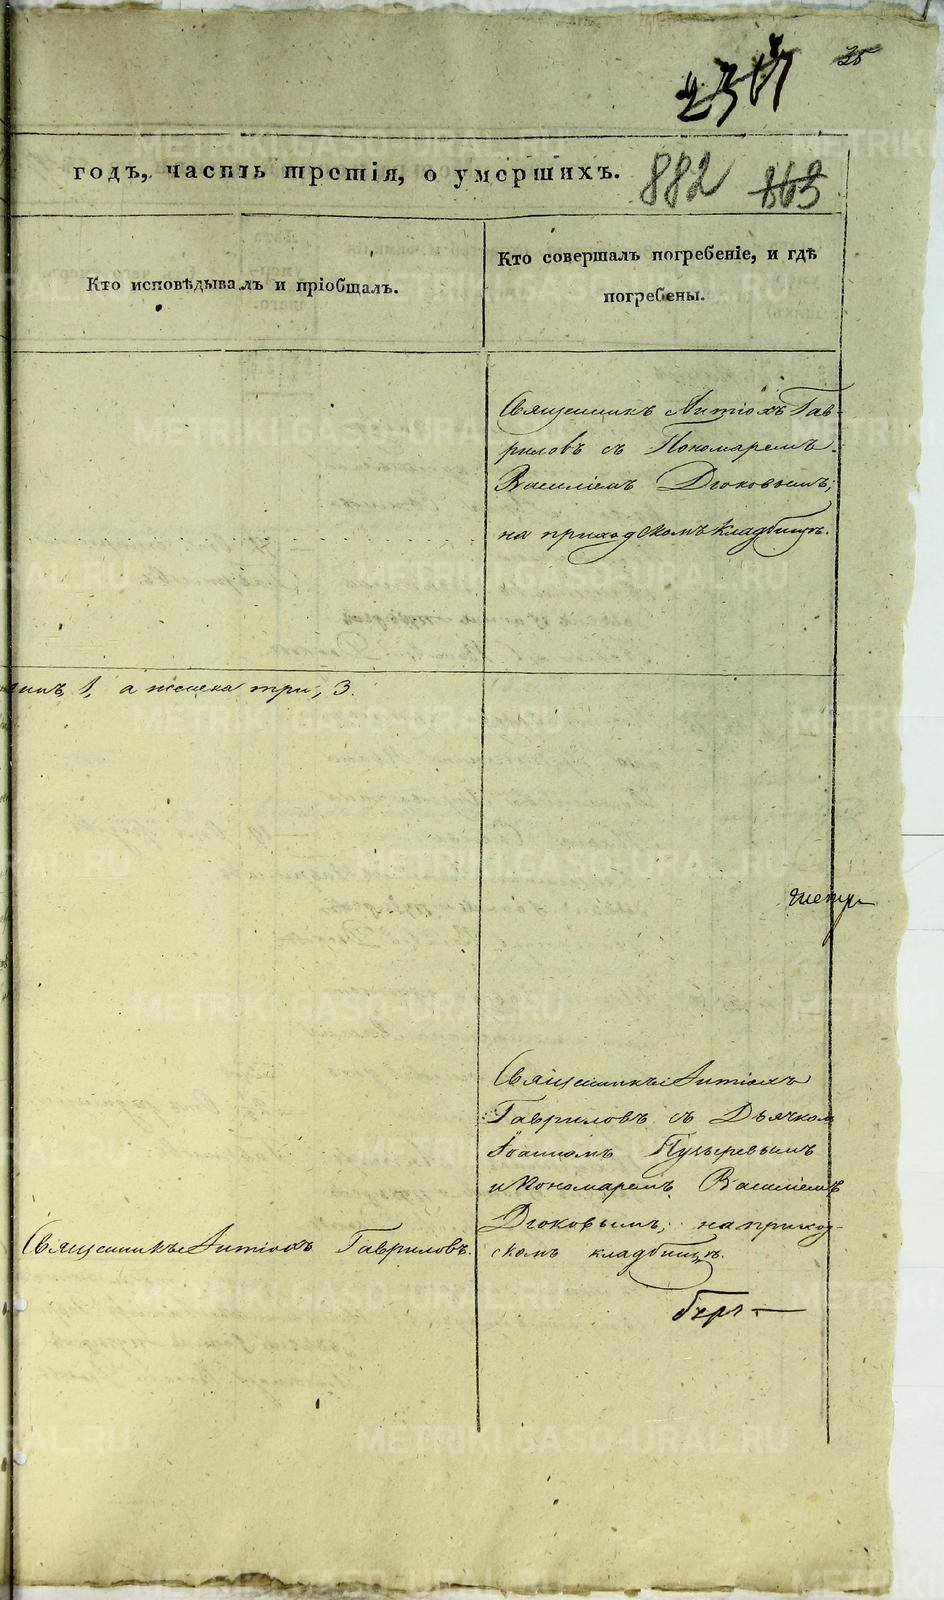 25
2367
годъ, часть третія, о умершихъ.
882 863
Кто исповѣдывалъ и пріобщалъ.
Кто совершалъ погребеніе, и гдѣ
погребены.
Священникъ Антіохъ Гав-
риловъ съ Пономаремъ
Василіемъ Дюковымъ;
на приходскомъ кладбищѣ.
1, а женска три, 3.
Священникъ Антіохъ
Гавриловъ съ Дьячком
Іоанномъ Пузыревымъ
и Пономаремъ Василіемъ
Дюковымъ; на приход-
скомъ кладбищѣ.
Священникъ Антіохъ Гавриловъ.
METRIKI.GASO-URAL.RU